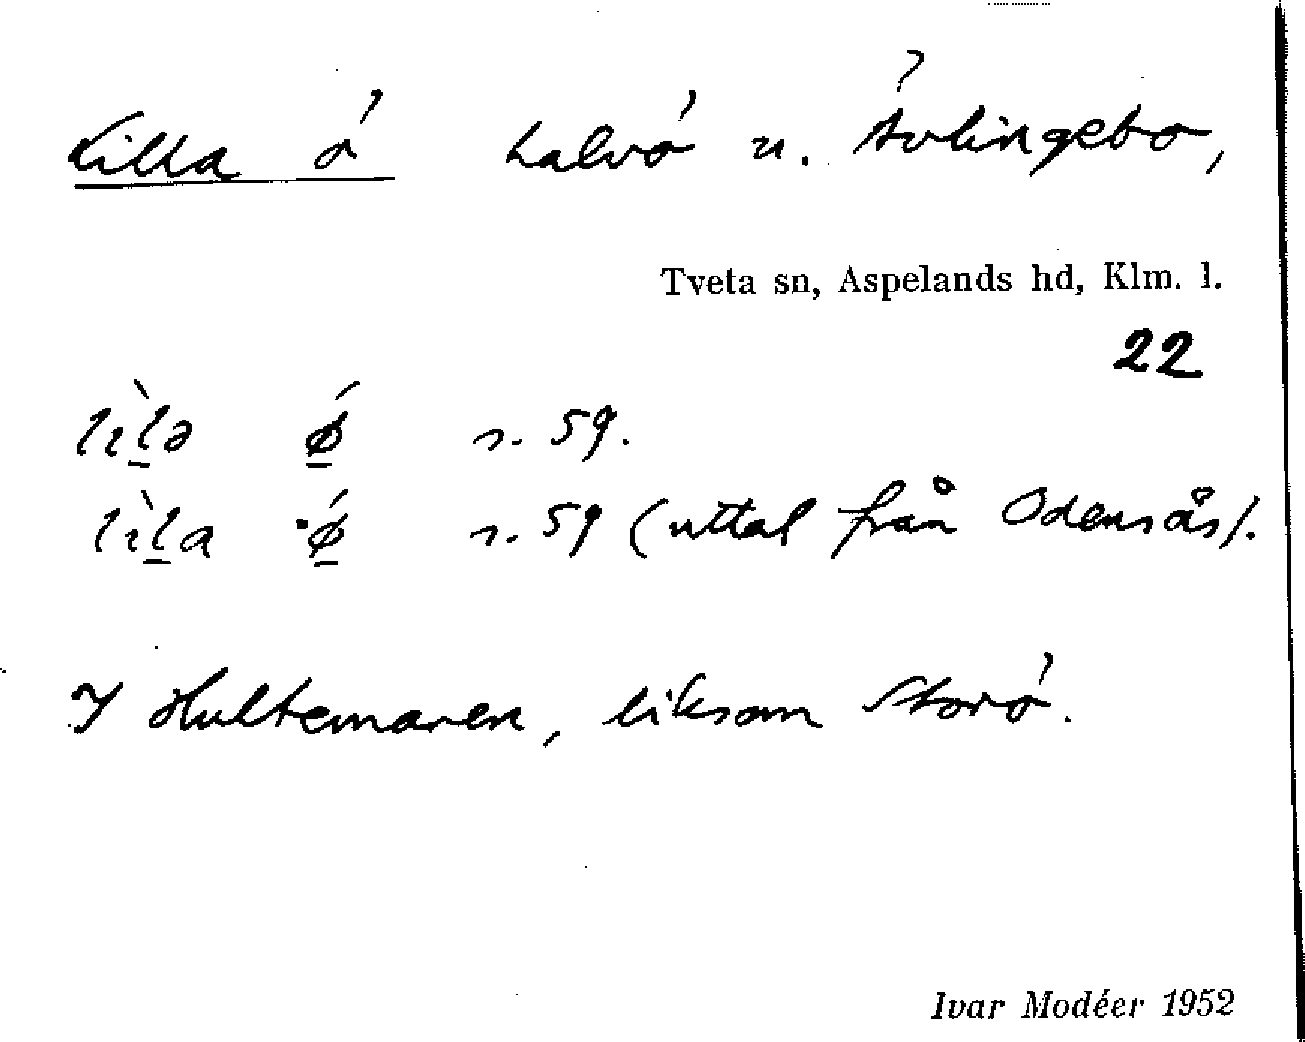 Lilla ö halvö u. Ävlingebo,
Tveta sn, Aspelands hd, Klm. l.
22
s. 59.
s. 59 (uttal från Odensås).
I Hultemaren, liksom Storö.
Ivar Modéer 1952